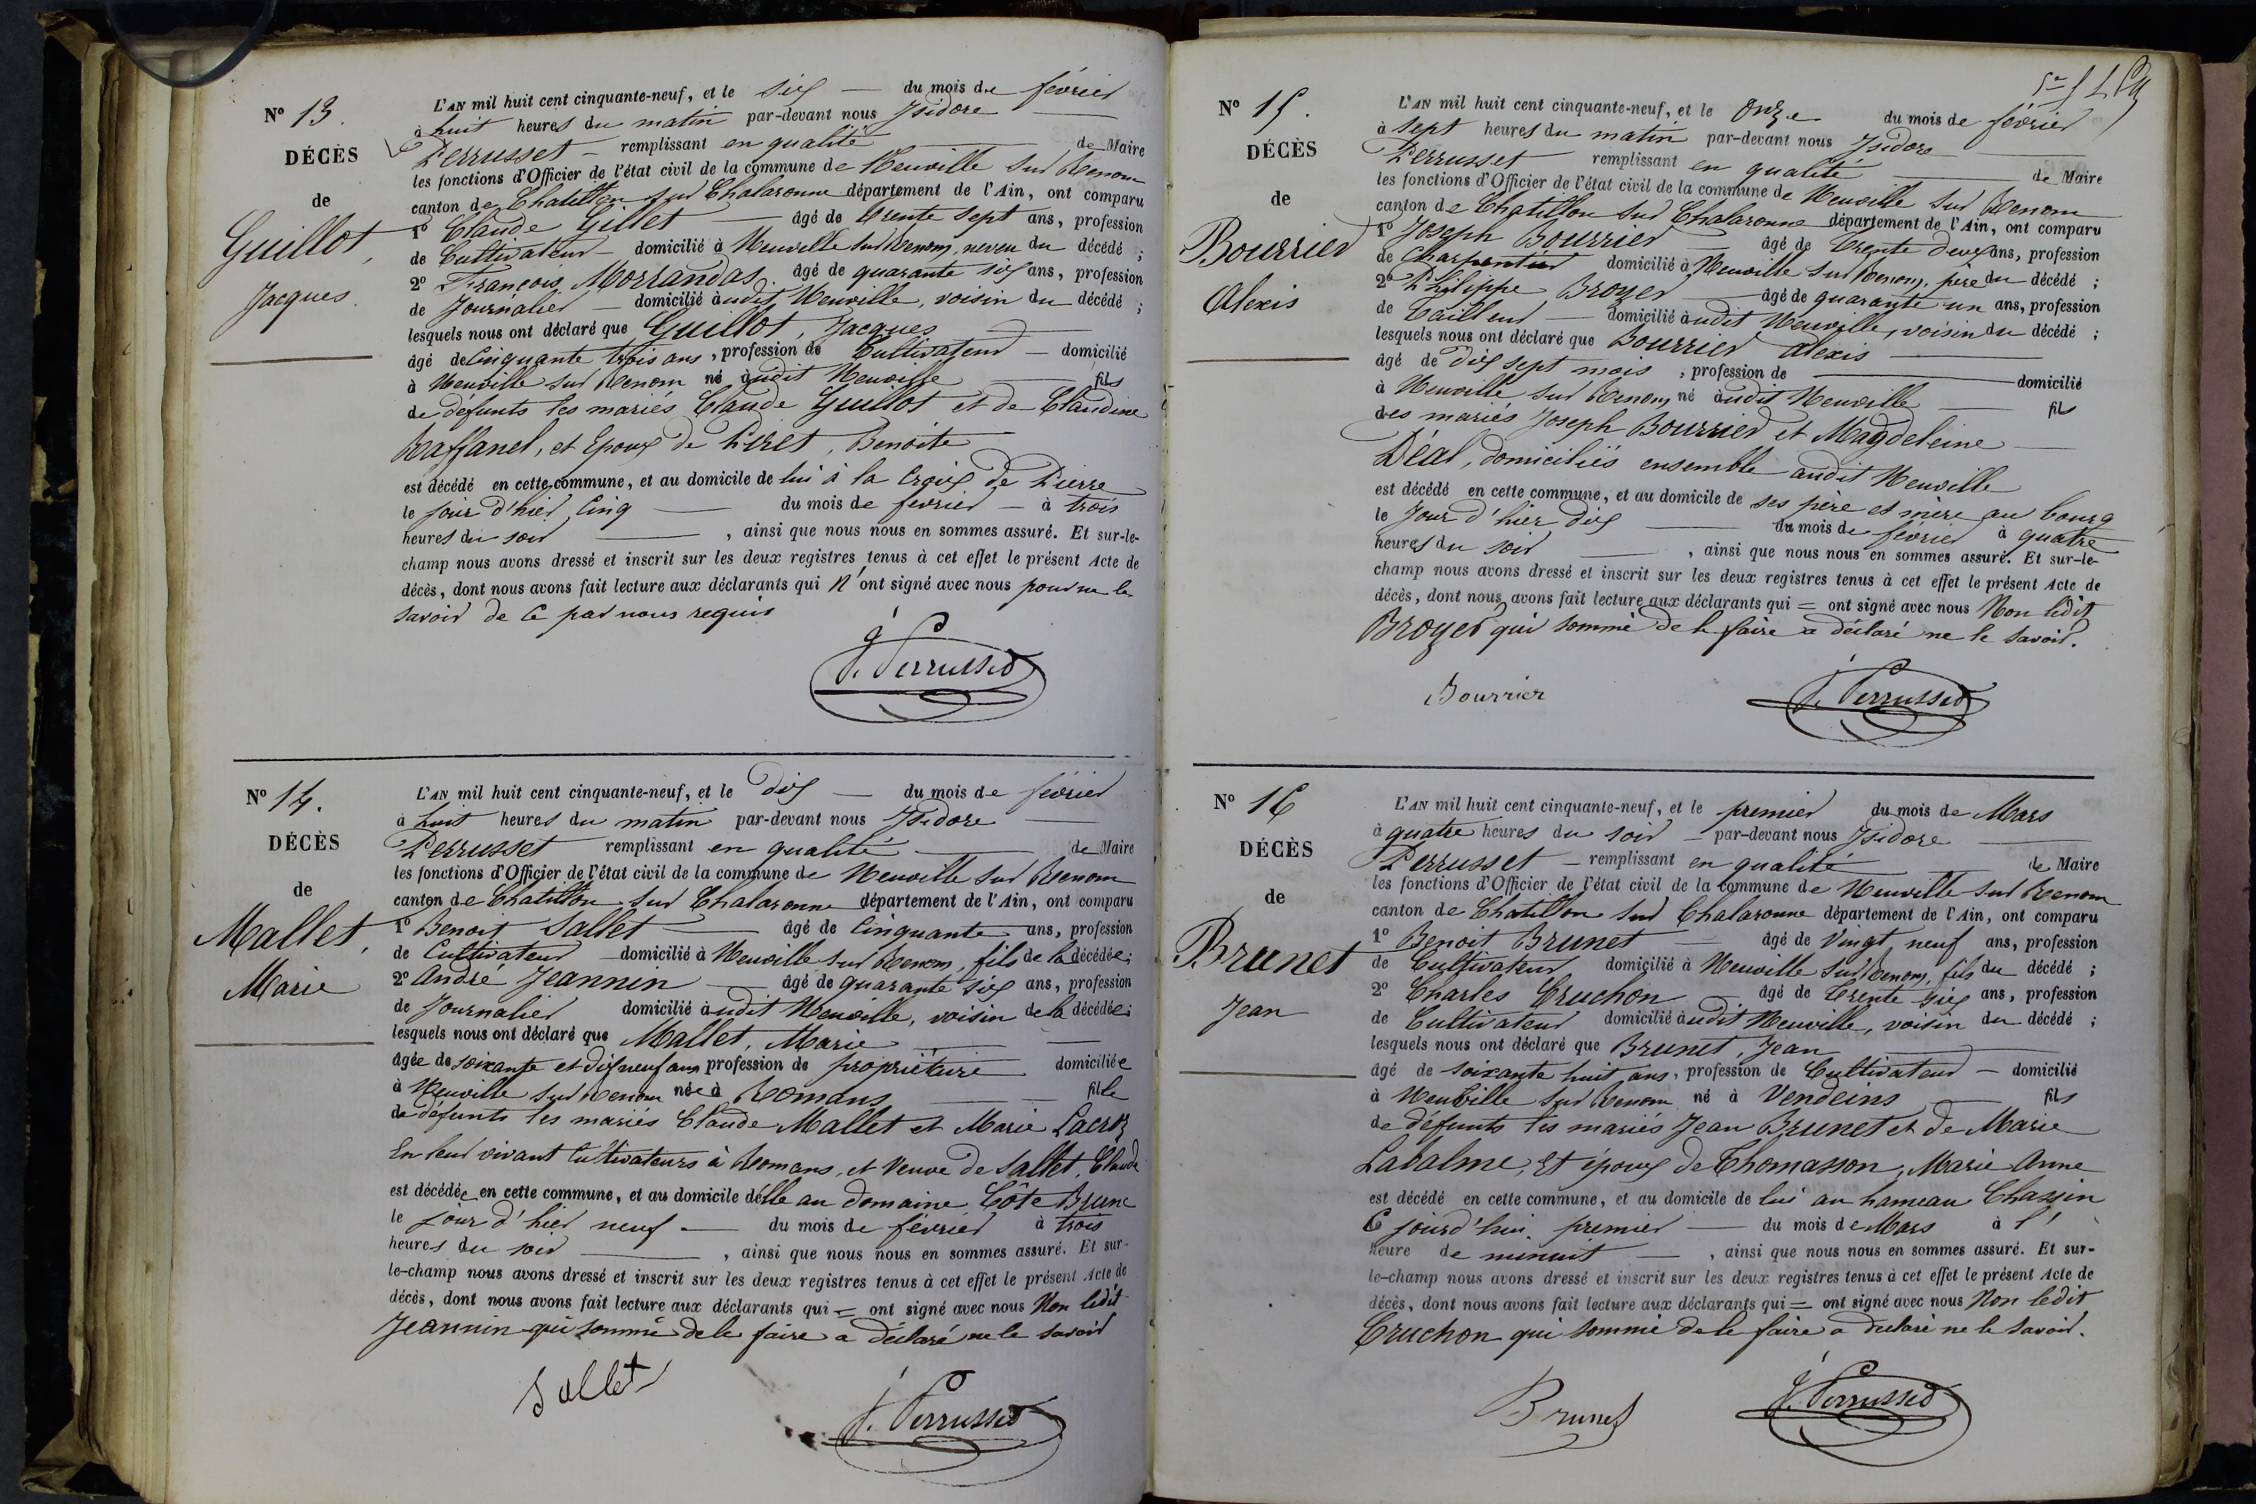 N° 13.
DÉCÈS
de
Guillot,
Jacques.
L'AN mil huit cent cinquante-neuf, et le six du mois de février
à huit heures du matin par-devant nous Isidore
Perrusset remplissant en qualité de Maire
les fonctions d'Officier de l'état civil de la commune de Neuville sur Renom
canton de Chatillon sur Chalaronne département de l'Ain, ont comparu
1° Claude Gillet âgé de trente sept ans, profession
de Cultivateur domicilié à Neuville sur Renom, neveu du décédé ;
2° François Morrandas. âgé de quarante six ans, profession
de Journalier domicilié àudit Neuville, voisin du décédé ;
lesquels nous ont déclaré que Guillot, Jacques
âgé de Cinquante trois ans, profession de Cultivateur domicilié
à Neuville sur Renom né àudit Neuville fils
de défunts les mariés Claude Guillot et de Claudine
Raffanel, et Epoux de Piret, Benoite
est décédé en cette commune, et au domicile de lui à la Croix de Pierre
le jour d'hier Cinq du mois de fevrier à trois
heures du soir , ainsi que nous nous en sommes assuré. Et sur-le-
champ nous avons dressé et inscrit sur les deux registres tenus à cet effet le présent Acte de
décès, dont nous avons fait lecture aux déclarants qui n'ont signé avec nous pour ne le
savoir de ce par nous requis
J. Perrusset
N° 14.
DÉCÈS
de
Mallet,
Marie
L'AN mil huit cent cinquante-neuf, et le dix du mois de février
à huit heures du matin par-devant nous Isidore
Perrusset remplissant en qualité de Maire
les fonctions d'Officier de l'état civil de la commune de Neuville sur Renom
canton de Chatillon sur Chalaronne département de l'Ain, ont comparu
1° Benoit Sallet âgé de Cinquante ans, profession
de Cultivateur domicilié à Neuville sur Renom, fils de la décédée ;
2° André Jeannin âgé de quarante six ans, profession
de Journalier domicilié àudit Neuville, voisin de la décédée ;
lesquels nous ont déclaré que Mallet, Marie
âgée de soixante et dix neuf ans profession de propriétaire domiciliée
à Neuville sur Renom née à Romans fille
de défunts les mariés Claude Mallet et Marie Lacroz
En leur vivant Cultivateurs à Romans, et Veuve de Sallet, Claude
est décédée en cette commune, et au domicile délle au domaine Côte Brune
le jour d'hier neuf du mois de février à trois
heures du soir , ainsi que nous nous en sommes assuré. Et sur-
le-champ nous avons dressé et inscrit sur les deux registres tenus à cet effet le présent Acte de
décès, dont nous avons fait lecture aux déclarants qui = ont signé avec nous Non ledit
Jeannin qui sommé de le faire a déclaré ne le savoir
Sallet
J. Perrusset
N° 15.
DÉCÈS
de
Bourrier
Alexis
L'AN mil huit cent cinquante-neuf, et le Onze du mois de février
à sept heures du matin par-devant nous Isidore
Perrusset remplissant en qualité de Maire
les fonctions d'Officier de l'état civil de la commune de Neuville sur Renom
canton de Chatillon sur Chalaronne département de l'Ain, ont comparu
1° Joseph Bourrier âgé de trente deux ans, profession
de Charpentier domicilié à Neuville sur Renom, père du décédé ;
2° Philippe Broyer âgé de quarante un ans, profession
de Tailleur domicilié àudit Neuville, voisin du décédé ;
lesquels nous ont déclaré que Bourrier Alexis
âgé de dix sept mois , profession de domicilié
à Neuville sur Renom né àudit Neuville fils
des mariés Joseph Bourrier et Magdeleine
Déal, domiciliés ensemble audit Neuville
est décédé en cette commune, et au domicile de ses père et mère au bourg
le Jour d'hier dix du mois de février à quatre
heures du soir , ainsi que nous nous en sommes assuré. Et sur-le-
champ nous avons dressé et inscrit sur les deux registres tenus à cet effet le présent Acte de
décès, dont nous avons fait lecture aux déclarants qui = ont signé avec nous Non ledit
Broyer qui sommé de le faire a déclaré ne le savoir.
Bourrier
J. Perrusset
N° 16
DÉCÈS
de
Brunet
Jean
L'AN mil huit cent cinquante-neuf, et le premier du mois de Mars
à quatre heures du soir par-devant nous Isidore
Perrusset remplissant en qualité de Maire
les fonctions d'Officier de l'état civil de la commune de Neuville sur Renom
canton de Chatillon sur Chalaronne département de l'Ain, ont comparu
1° Benoit Brunet âgé de Vingt neuf ans, profession
de Cultivateur domicilié à Neuville sur Renom, fils du décédé ;
2° Charles Cruchon âgé de trente six ans, profession
de Cultivateur domicilié àudit Neuville, voisin du décédé ;
lesquels nous ont déclaré que Brunet, Jean
âgé de soixante huit ans, profession de Cultivateur domicilié
à Neuville sur Renom né à Vendeins fils
de défunts les mariés Jean Brunet et de Marie
Labalme, Et époux de Thomasson, Marie Anne
est décédé en cette commune, et au domicile de lui au hameau Chassin
Ce jourd'hui premier du mois de Mars à l'
heure de minuit , ainsi que nous nous en sommes assuré. Et sur-
le-champ nous avons dressé et inscrit sur les deux registres tenus à cet effet le présent Acte de
décès, dont nous avons fait lecture aux déclarants qui = ont signé avec nous Non ledit
Cruchon qui sommé de le faire a déclaré ne le savoir.
Brunet
J. Perrusset